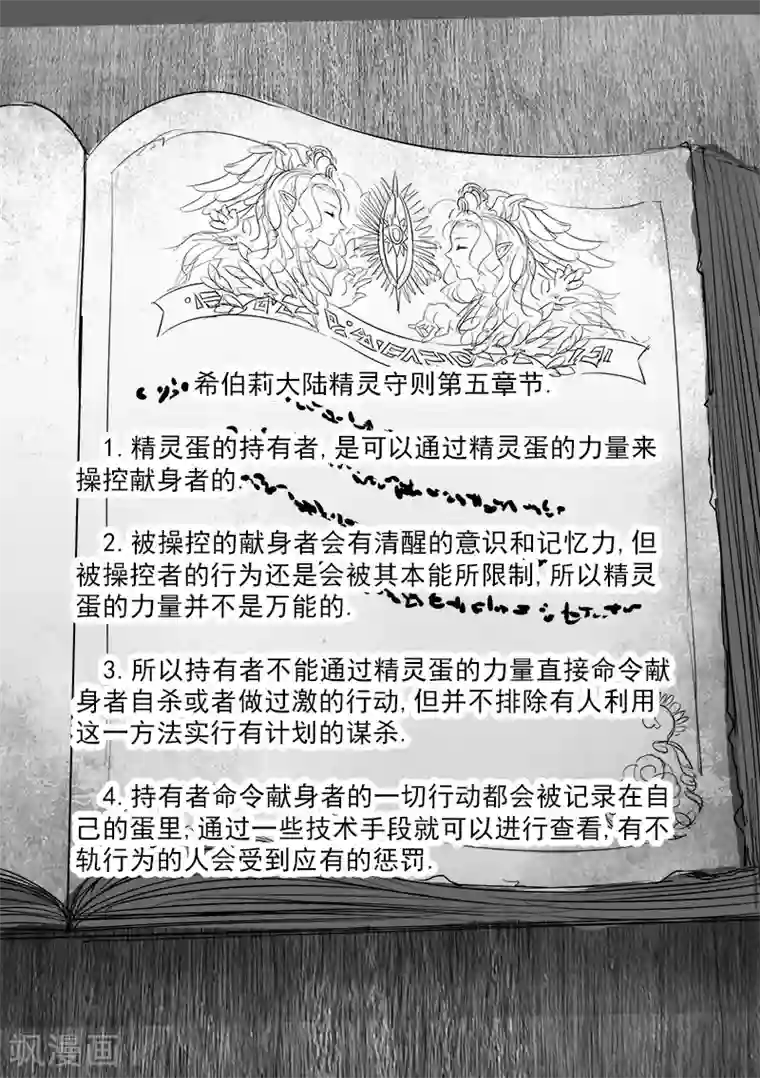 希伯莉大陆精灵守则第五章节.
1.精灵蛋的持有者,是可以通过精灵蛋的力量来
操控献身者的.
2.被操控的献身者会有清醒的意识和记忆力,但
被操控者的行为还是会被其本能所限制,所以精灵
蛋的力量并不是万能的.
3.所以持有者不能通过精灵蛋的力量直接命令献
身者自杀或者做过激的行动,但并不排除有人利用
这一方法实行有计划的谋杀.
4.持有者命令献身者的一切行动都会被记录在自
己的蛋里,通过一些技术手段就可以进行查看,有不
轨行为的人会受到应有的惩罚.
飒漫画